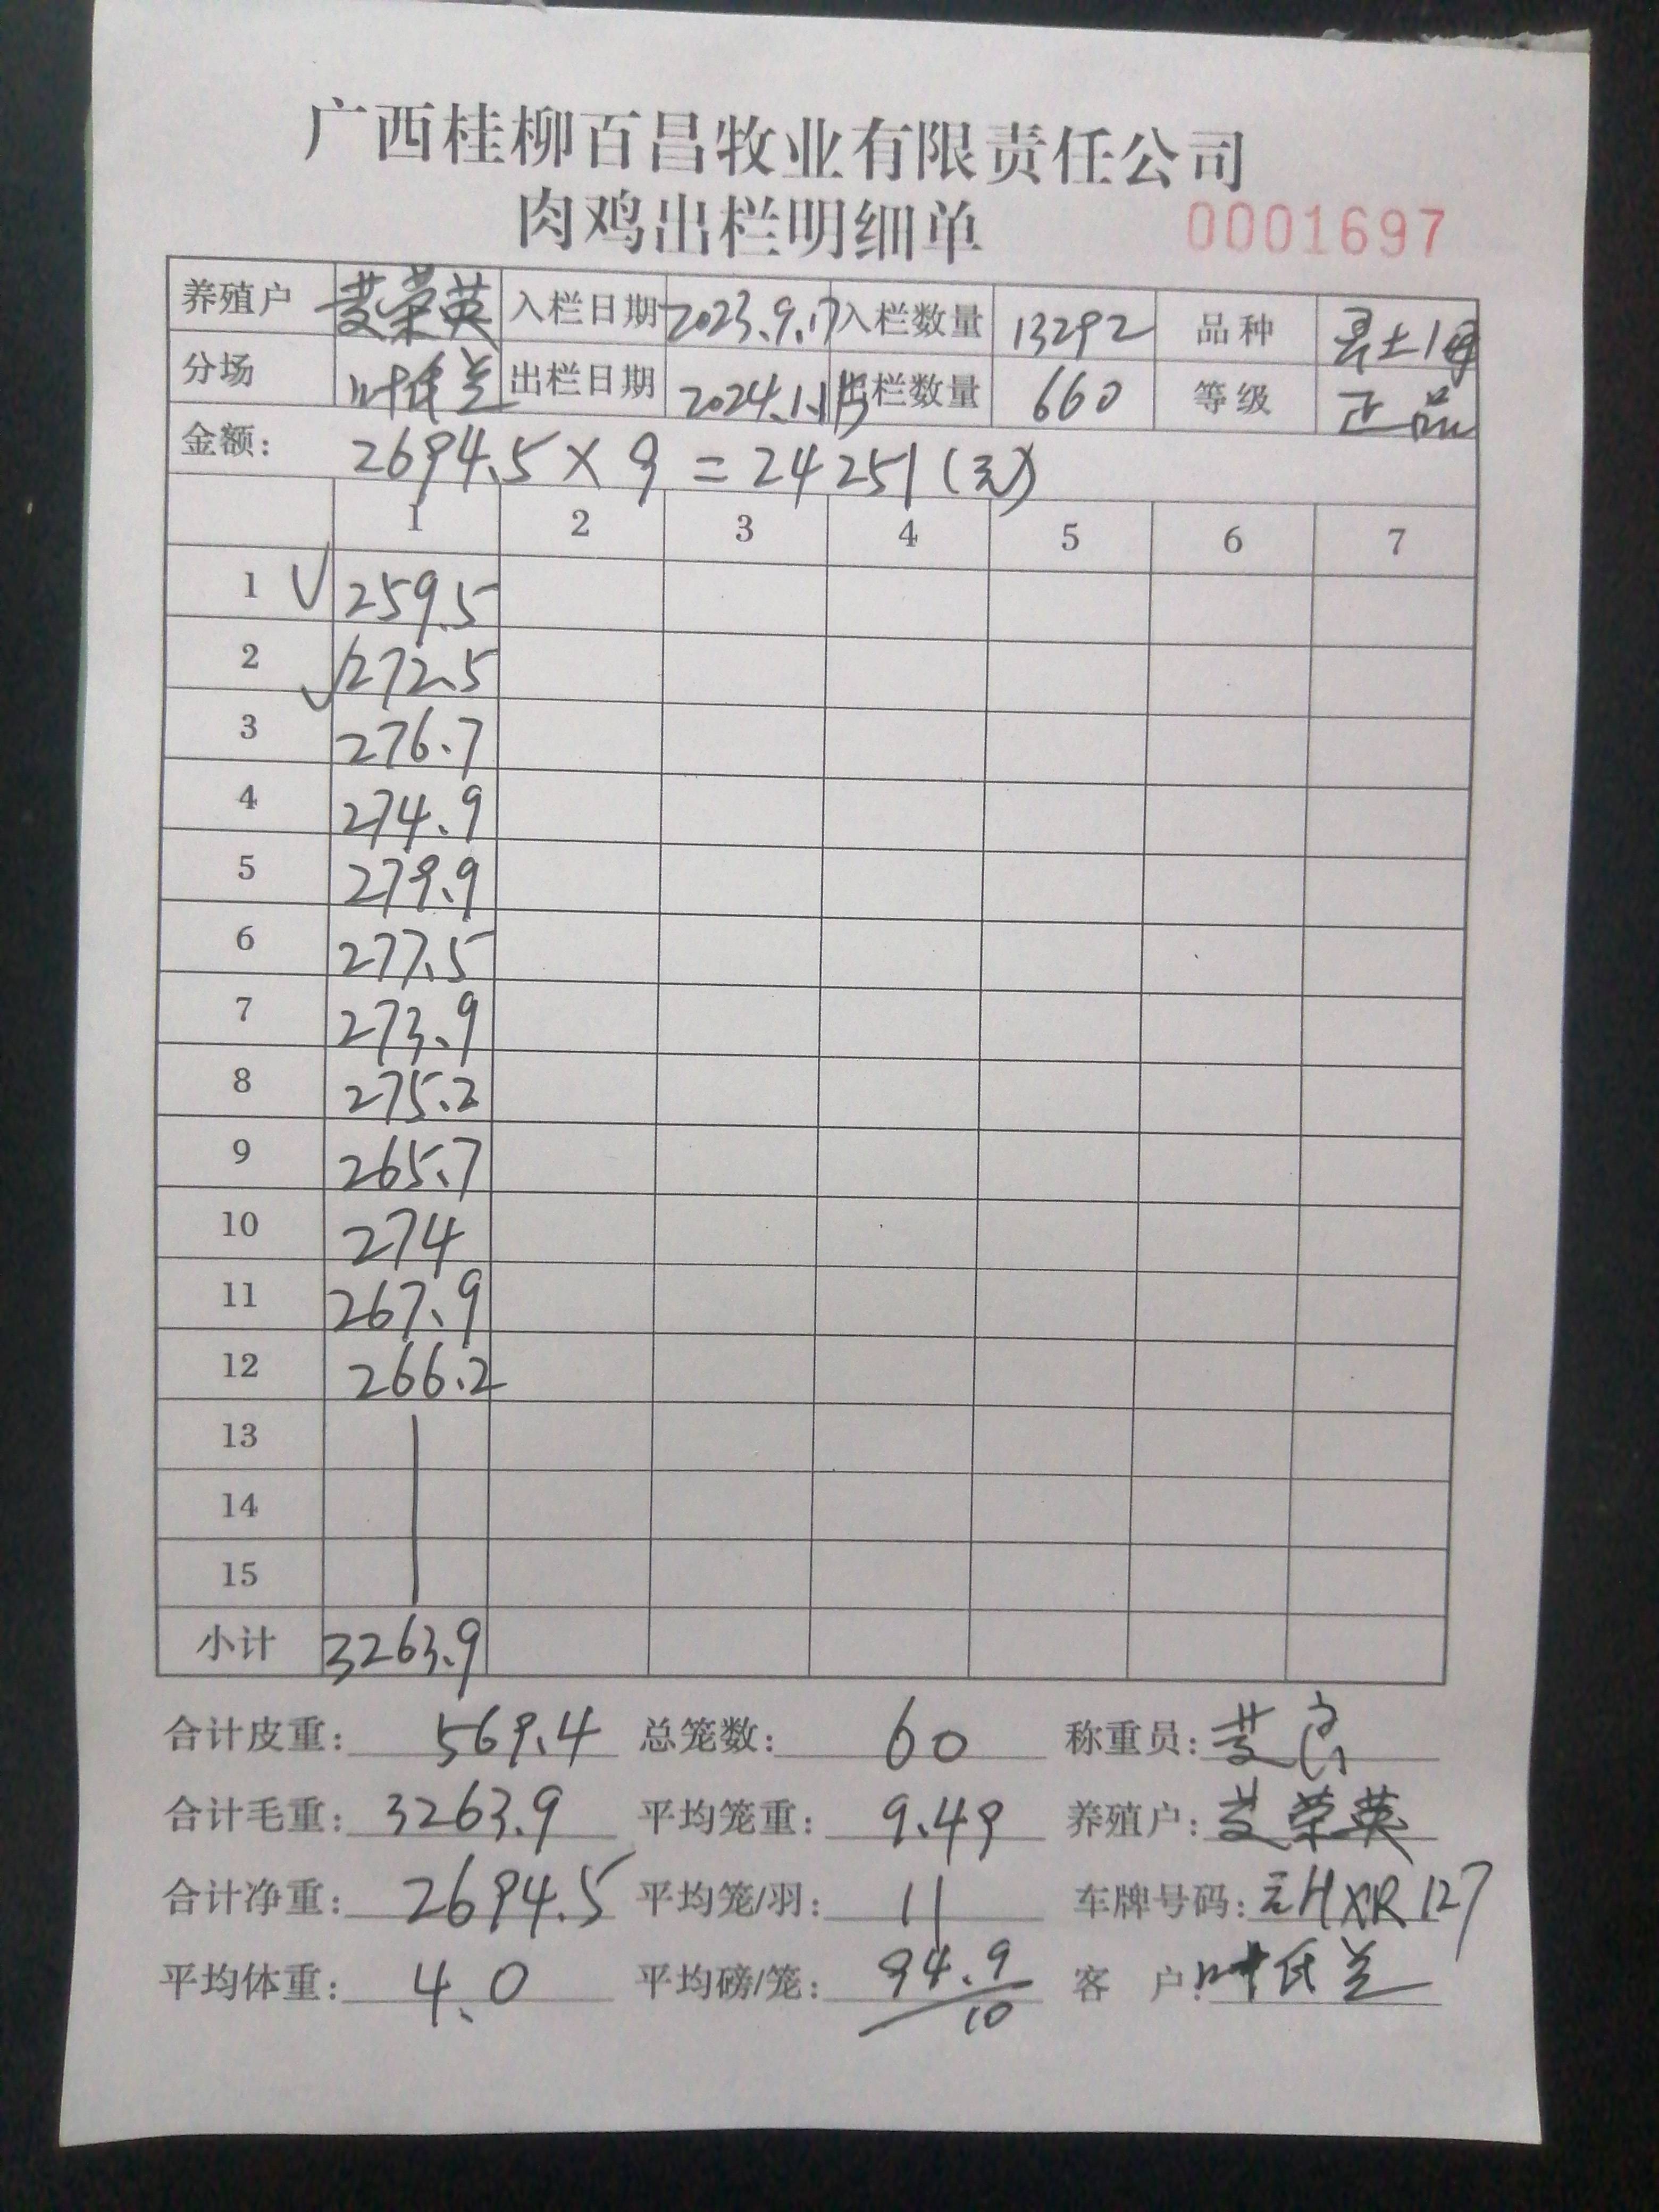 广西桂柳百昌牧业有限责任公司
肉鸡出栏明细单 0001697
养殖户 荣英 入栏日期 2023.9.17 入栏数量 13292 品种 土1
分场 叶氏兰 出栏日期 2024.1.15 出栏数量 660 等级 正品
金额: 2694.5×9=24251(元)
1 2 3 4 5 6 7
1 √ 259.5
2 √ 272.5
3 276.7
4 274.9
5 279.9
6 277.5
7 273.9
8 275.2
9 265.7
10 274
11 267.9
12 266.2
13
14
15
小计 3263.9
合计皮重: 569.4 总笼数: 60 称重员:
合计毛重: 3263.9 平均笼重: 9.49 养殖户: 荣英
合计净重: 2694.5 平均笼/羽: 11 车牌号码: HXR127
平均体重: 4.0 平均磅/笼: 94.9/10 客 户: 叶氏兰